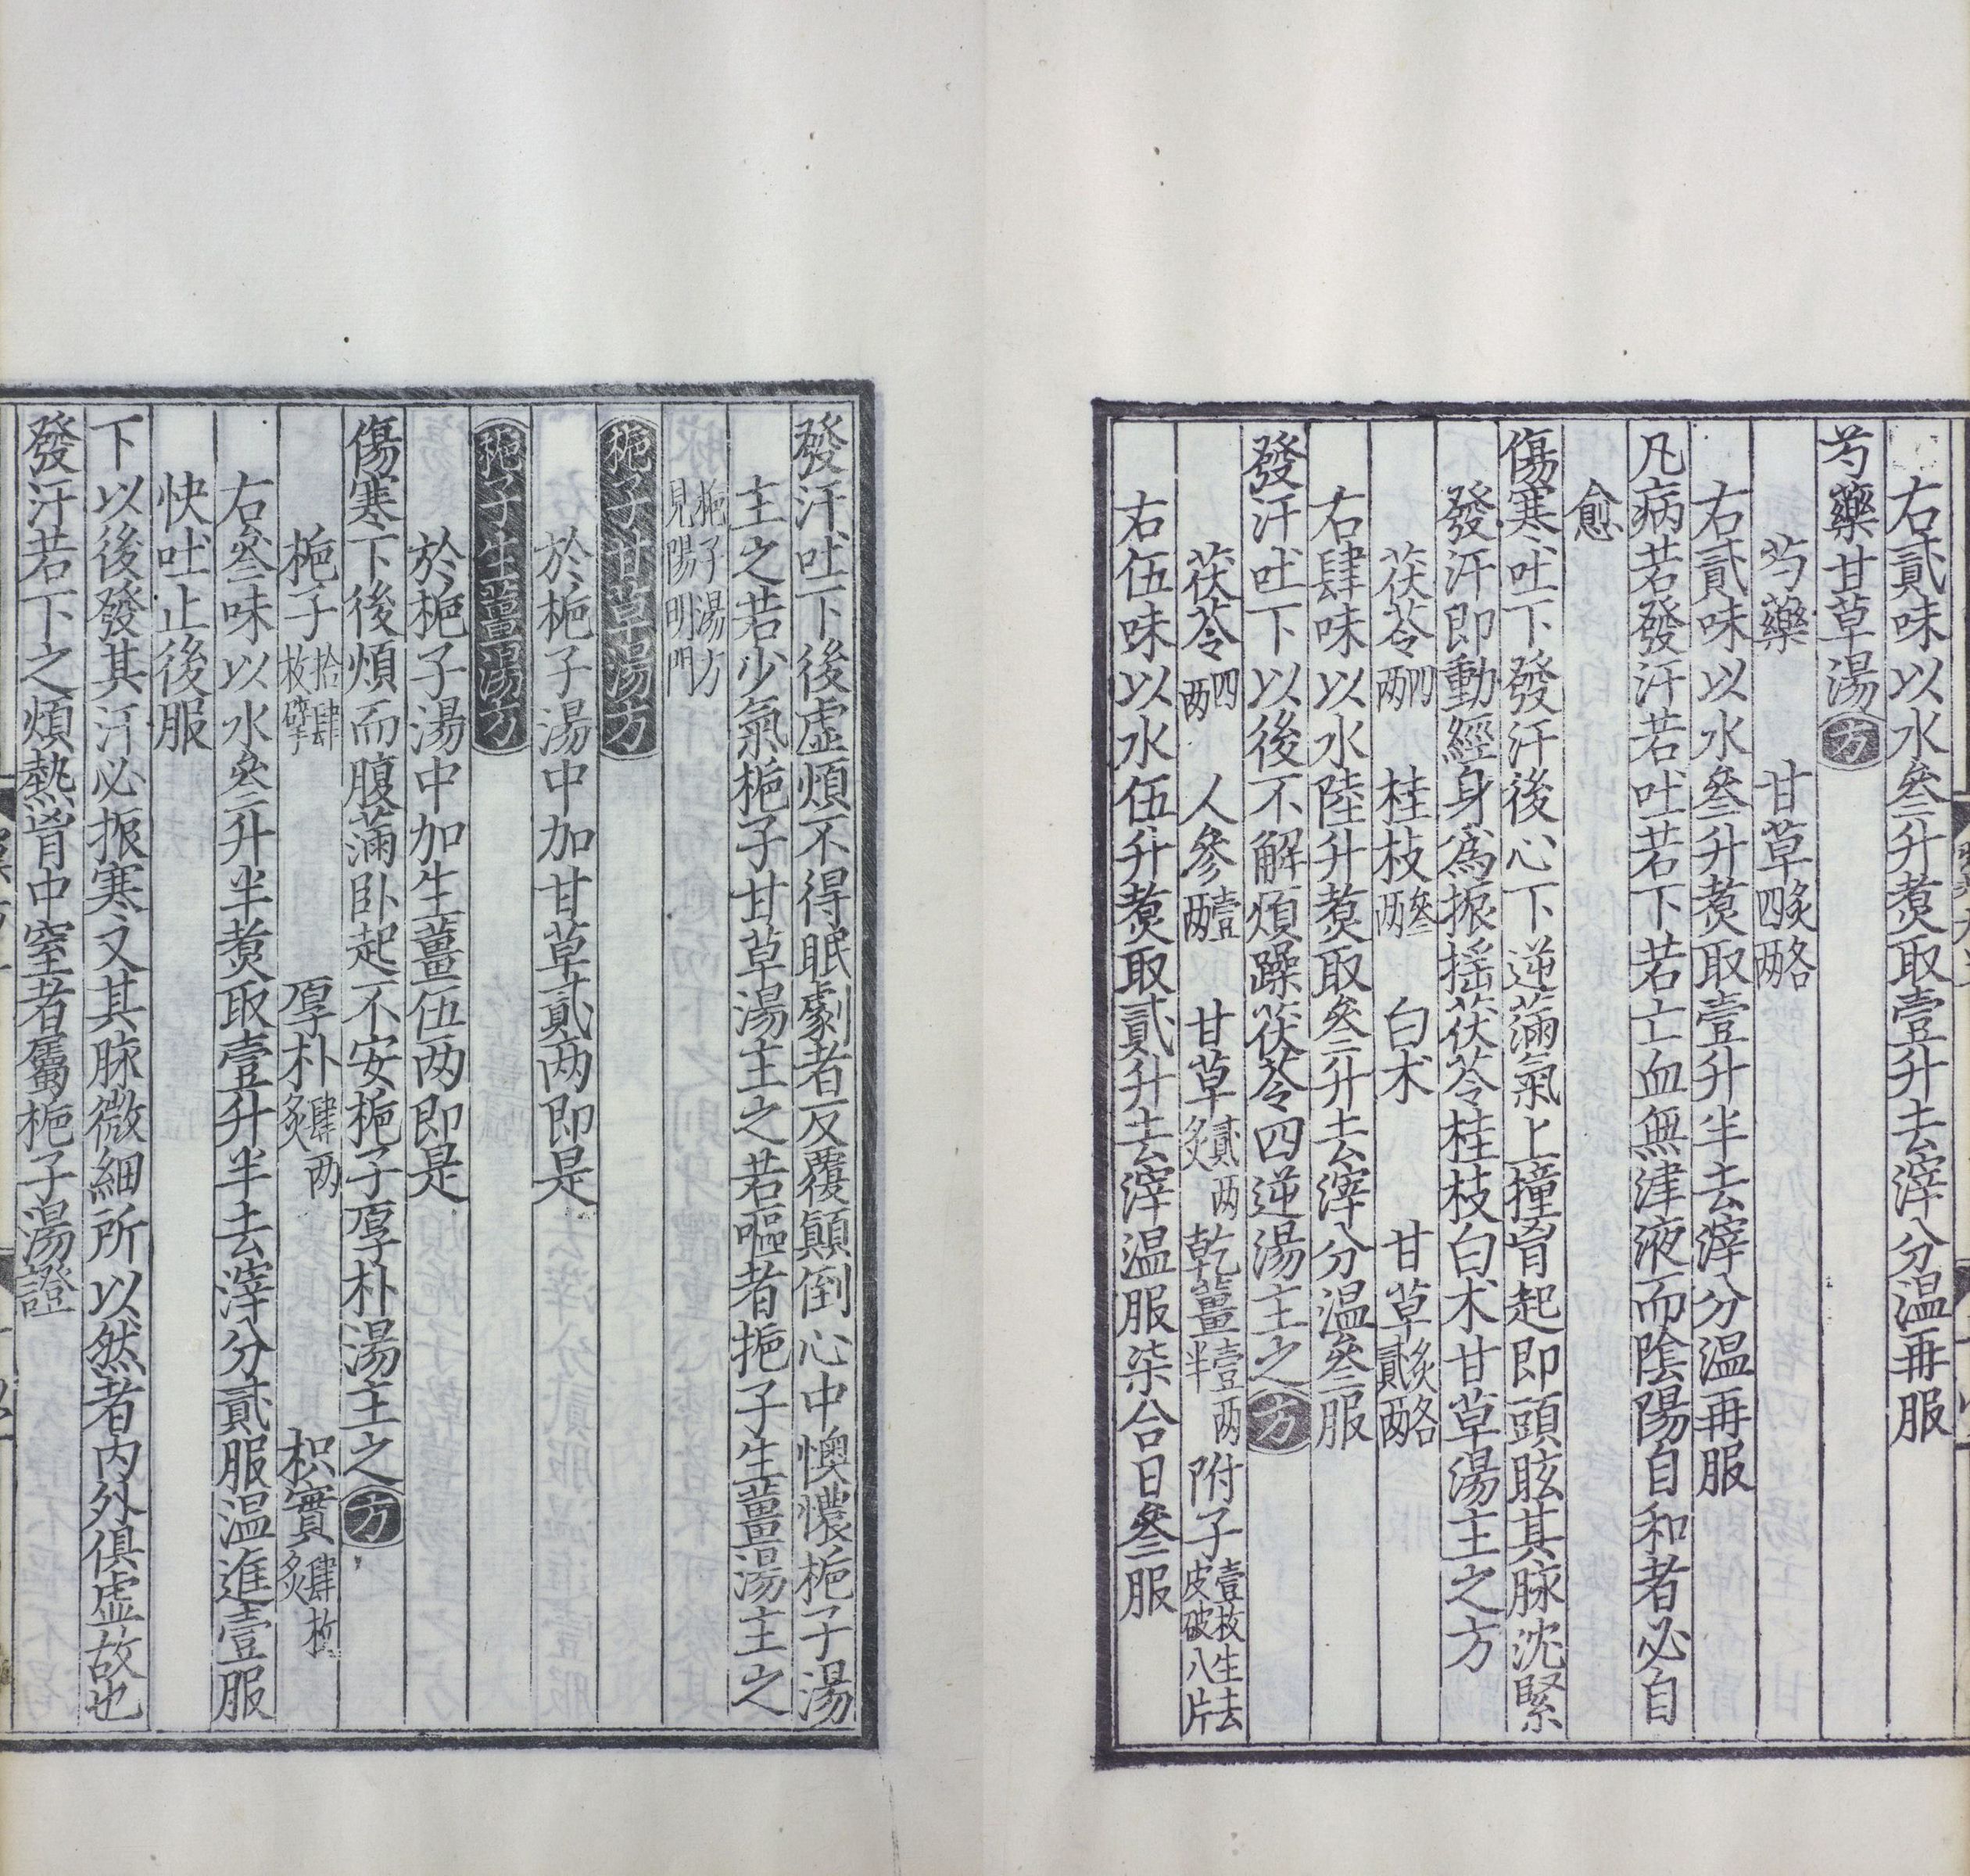 右貳味以水叄升煑取壹升去滓分温再服
芍藥甘草湯方
芍藥 甘草炙四兩各
右貳味以水叄升煑取壹升半去滓分温再服
凡病若發汗若吐若下若亡血無津液而隂陽自和者必自
愈
傷寒吐下發汗後心下逆滿氣上撞胷起即頭眩其脉沈緊
發汗即動經身爲振揺茯苓桂枝白术甘草湯主之方
茯苓四兩 桂枝叄兩 白术 甘草炙貳兩各
右肆味以水陸升煑取叄升去滓分温叄服
發汗吐下以後不解煩躁茯苓四逆湯主之方
茯苓四兩 人參壹兩 甘草貳兩炙 乾薑壹兩半 附子壹枚生去皮破八片
右伍味以水伍升煑取貳升去滓温服柒合日叄服
發汗吐下後虚煩不得眠劇者反覆顛倒心中懊憹梔子湯
主之若少氣梔子甘草湯主之若嘔者梔子生薑湯主之
梔子湯方見陽明門
梔子甘草湯方
於梔子湯中加甘草貳两即是
梔子生薑湯方
於梔子湯中加生薑伍两即是
傷寒下後煩而腹滿卧起不安梔子厚朴湯主之方
梔子拾肆枚擘 厚朴肆两炙 枳實肆枚炙
右叄味以水叄升半煑取壹升半去滓分貳服温進壹服
快吐止後服
下以後發其汗必振寒又其脉微細所以然者内外俱虚故也
發汗若下之煩熱胷中窒者屬梔子湯證